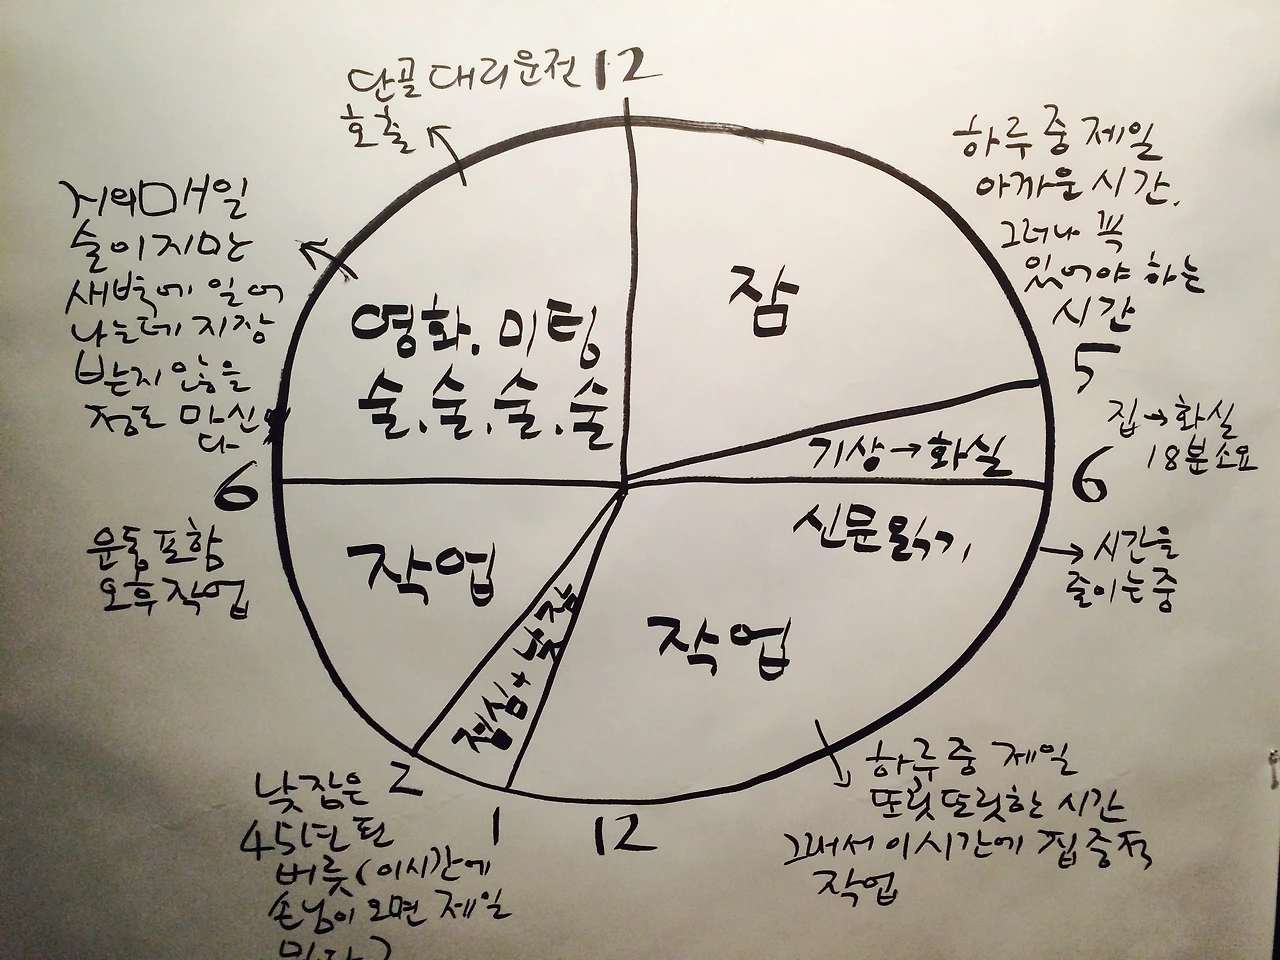 단골 대리운전
호출
12
하루 중 제일
아까운 시간.
그러나 꼭
있어야 하는
시간
거의 매일
술이지만
새벽에 일어
나는데 지장
받지 않을
정도 마신
다
잠
영화. 미팅
술.술.술.술
5
기상→화실
집→화실
18분 소요
6
6
신문읽기
→ 시간을
줄이는 중
운동포함
오후작업
작업
점심+낮잠
작업
하루 중 제일
또릿또릿한 시간
그래서 이시간에 집중적
작업
2
1
12
낮잠은
45년 된
버릇(이시간에
손님이 오면 제일